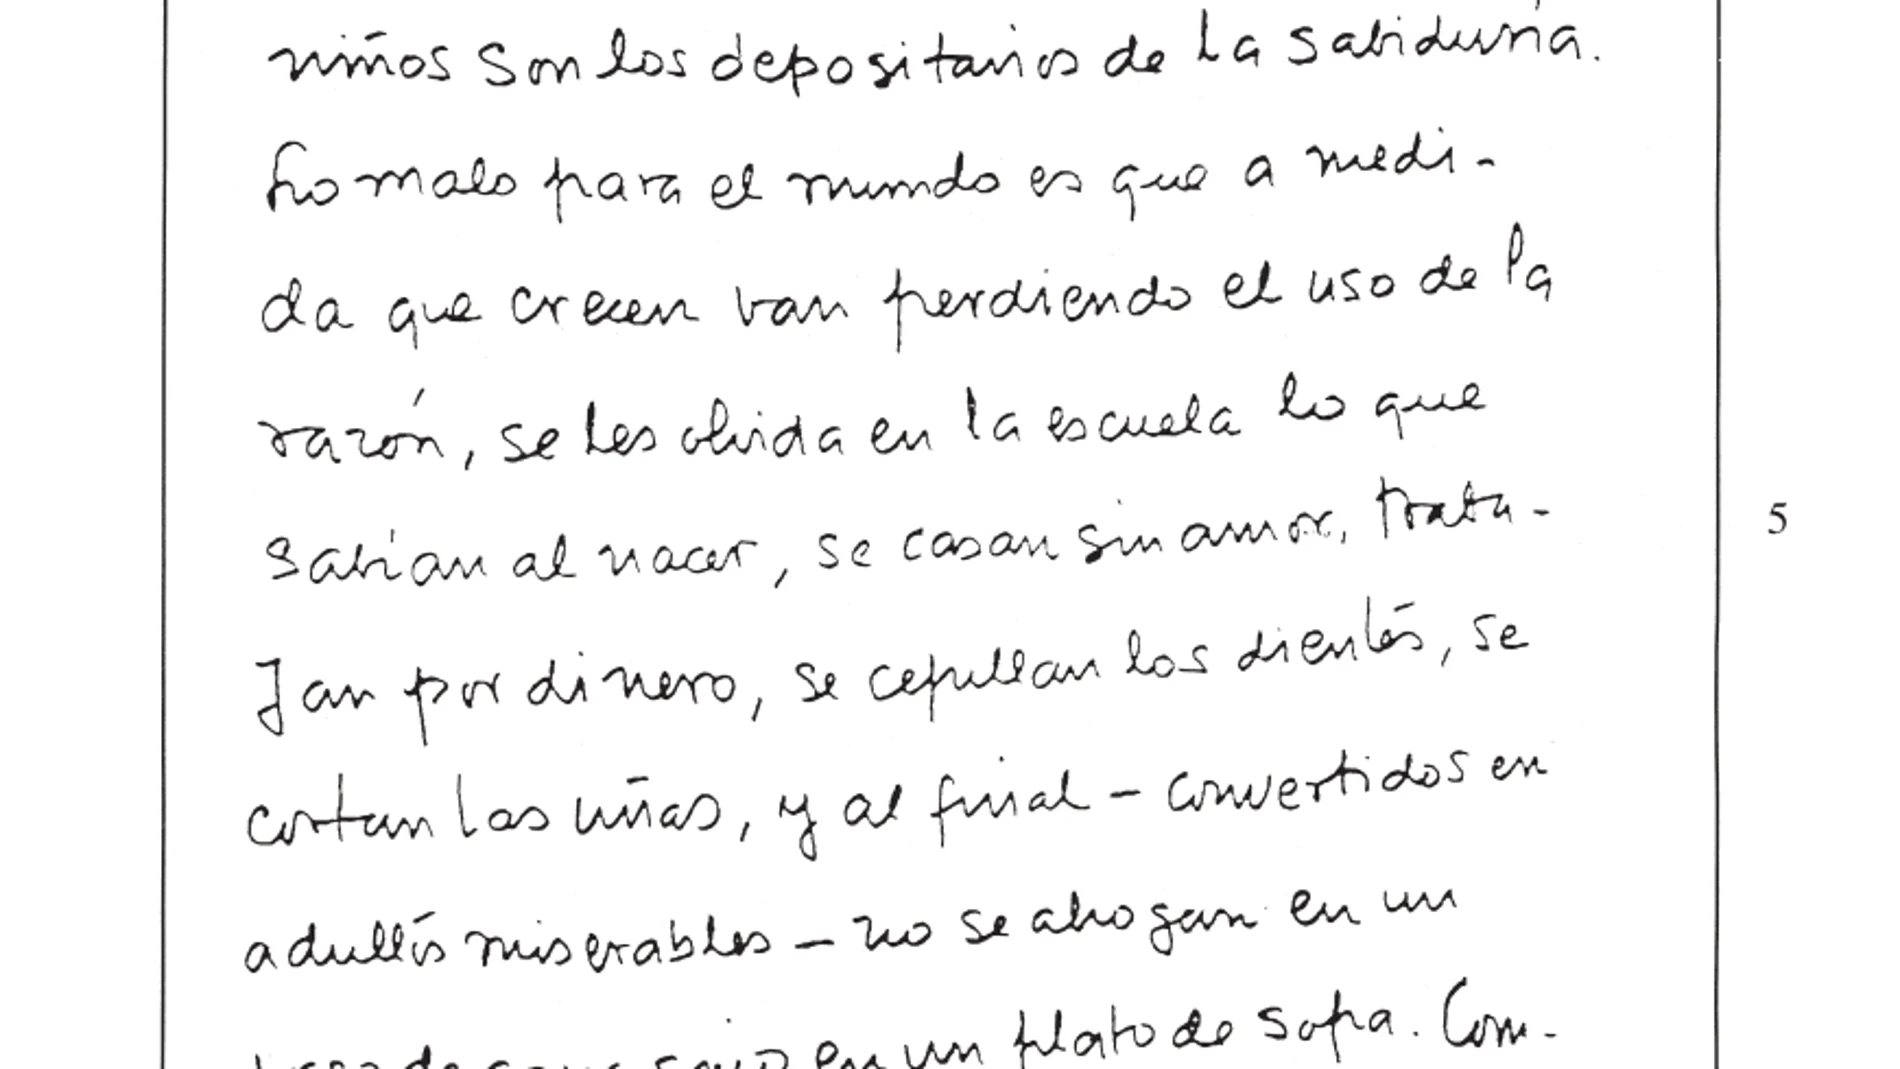 niños son los depositarios de la sabiduría.
Lo malo para el mundo es que a medi-
da que crecen van perdiendo el uso de la
razón, se les olvida en la escuela lo que
sabían al nacer, se casan sin amor, traba-
jan por dinero, se cepillan los dientes, se
cortan las uñas, y al final – convertidos en
adultos miserables – no se ahogan en un
vaso de agua sino en un plato de sopa. Com-
5